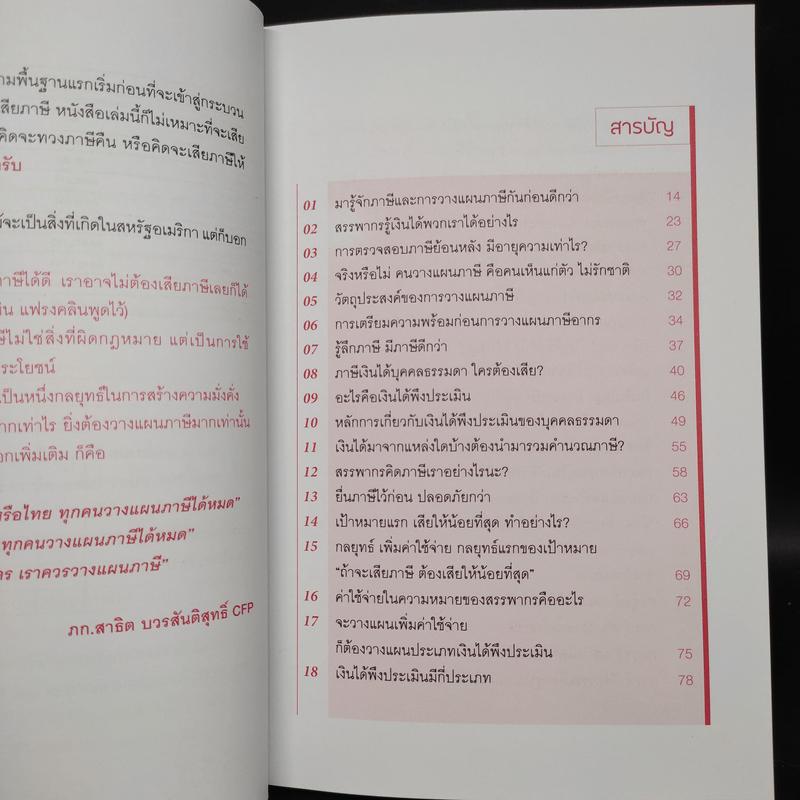 ามพื้นฐานแรกเริ่มก่อนที่จะเข้าสู่กระบวน
สียภาษี หนังสือเล่มนี้ก็ไม่เหมาะที่จะเสีย
คิดจะทวงภาษีคืน หรือคิดจะเสียภาษีให้
รับ
จะเป็นสิ่งที่เกิดในสหรัฐอเมริกา แต่ก็บอก
าษีได้ดี เราอาจไม่ต้องเสียภาษีเลยก็ได้
มิน แฟรงคลินพูดไว้)
ษีไม่ใช่สิ่งที่ผิดกฎหมาย แต่เป็นการใช้
ระโยชน์
เป็นหนึ่งกลยุทธ์ในการสร้างความมั่งคั่ง
ากเท่าไร ยิ่งต้องวางแผนภาษีมากเท่านั้น
อกเพิ่มเติม ก็คือ
หรือไทย ทุกคนวางแผนภาษีได้หมด”
ทุกคนวางแผนภาษีได้หมด”
คร เราควรวางแผนภาษี”
ภก.สาธิต บวรสันติสุทธิ์ CFP
สารบัญ
01 มารู้จักภาษีและการวางแผนภาษีกันก่อนดีกว่า 14
02 สรรพากรรู้เงินได้พวกเราได้อย่างไร 23
03 การตรวจสอบภาษีย้อนหลัง มีอายุความเท่าไร? 27
04 จริงหรือไม่ คนวางแผนภาษี คือคนเห็นแก่ตัว ไม่รักชาติ 30
05 วัตถุประสงค์ของการวางแผนภาษี 32
06 การเตรียมความพร้อมก่อนการวางแผนภาษีอากร 34
07 รู้ลึกภาษี มีภาษีดีกว่า 37
08 ภาษีเงินได้บุคคลธรรมดา ใครต้องเสีย? 40
09 อะไรคือเงินได้พึงประเมิน 46
10 หลักการเกี่ยวกับเงินได้พึงประเมินของบุคคลธรรมดา 49
11 เงินได้มาจากแหล่งใดบ้างต้องนำมารวมคำนวณภาษี? 55
12 สรรพากรคิดภาษีเราอย่างไรนะ? 58
13 ยื่นภาษีไว้ก่อน ปลอดภัยกว่า 63
14 เป้าหมายแรก เสียให้น้อยที่สุด ทำอย่างไร? 66
15 กลยุทธ์ เพิ่มค่าใช้จ่าย กลยุทธ์แรกของเป้าหมาย
“ถ้าจะเสียภาษี ต้องเสียให้น้อยที่สุด” 69
16 ค่าใช้จ่ายในความหมายของสรรพากรคืออะไร 72
17 จะวางแผนเพิ่มค่าใช้จ่าย
ก็ต้องวางแผนประเภทเงินได้พึงประเมิน 75
18 เงินได้พึงประเมินมีกี่ประเภท 78